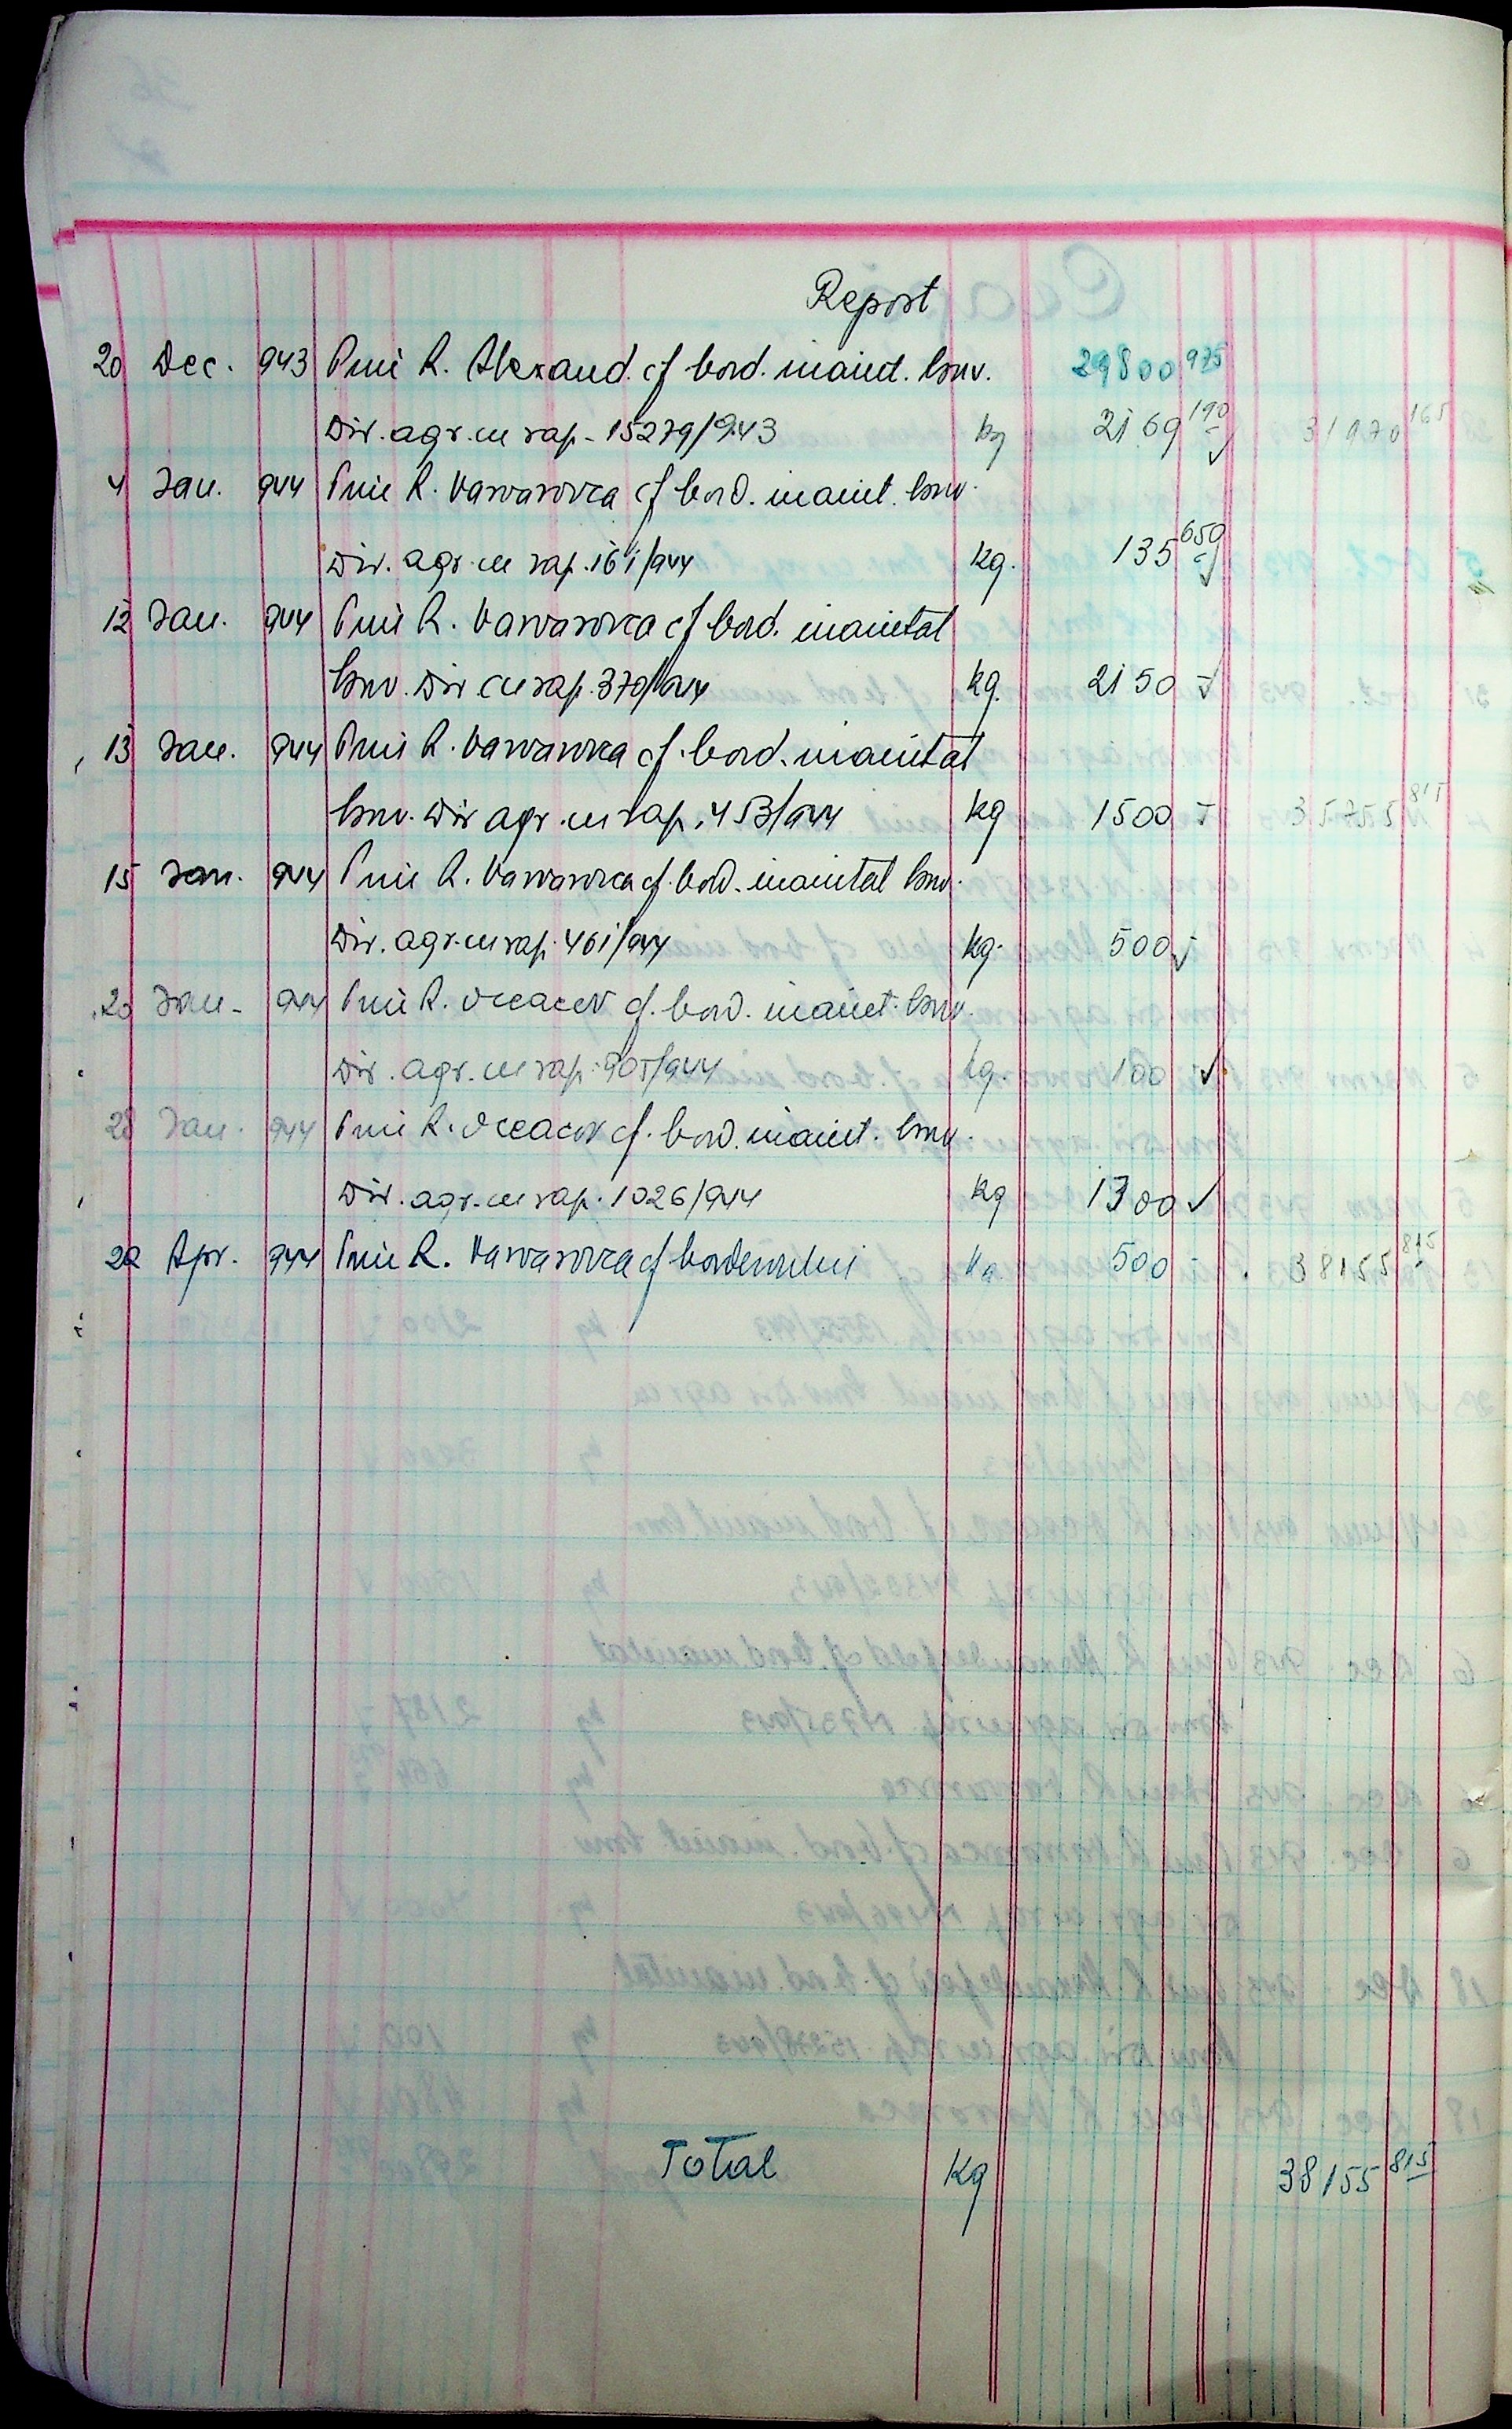 Report
20 Dec. 943 Prin R. Alexand. cf bord. inaint. 29800 975
Dir. agr. cu rap. 15279/943 kg 2169 190 31970 165
4 Ian. 944 Prin R. Varvarovca cf bord. inaint.
Dir. agr. cu rap. 161/944 kg. 135 650
12 Ian. 944 Prin R. Varvarovca cf bord. inaintat
Dir cu rap. 370/944 kg. 2150 -
13 Ian. 944 Prin R. Varvarovca cf. bord. inaintat
Dir agr. cu rap. 453/944 kg 1500 - 35755 815
15 Ian. 944 Prin R. Varvarovca cf. bord. inaintat
Dir. agr. cu rap. 461/944 kg. 500 -
20 Ian. 944 Prin R. Oceacov cf. bord. inaint.
Dir. agr. cu rap. 905/944 kg. 100
28 Ian. 944 Prin R. Oceacov cf. bord. inaint.
Dir. agr. cu rap. 1026/944 kg 1300
22 Apr. 944 Prin R. Varvarovca cf borderoului kg. 500 - 38155 815
Total Kg 38155 815